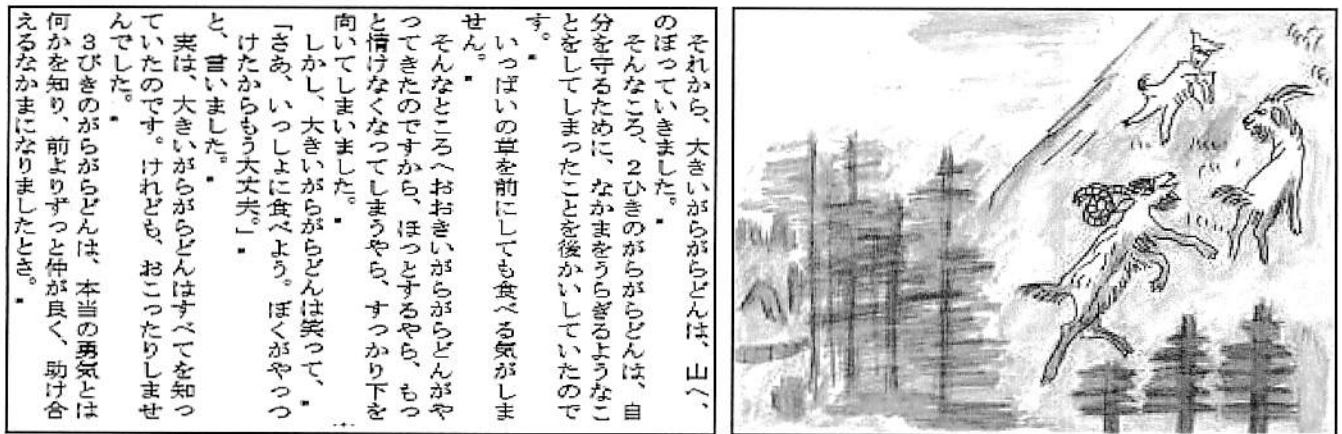 それから、大きいがらがらどんは、山へ、
のぼっていきました。
そんなころ、２ひきのがらがらどんは、自
分を守るために、なかまをうらぎるようなこ
とをしてしまったことを後かいしていたので
す。
いっぱいの草を前にしても食べる気がしま
せん。
そんなところへおおきいがらがらどんがや
ってきたのですから、ほっとするやら、もっ
と情けなくなってしまうやら、すっかり下を
向いてしまいました。
しかし、大きいがらがらどんは笑って、
「さあ、いっしょに食べよう。ぼくがやっつ
けたからもう大丈夫。」
と、言いました。
実は、大きいがらがらどんはすべてを知っ
ていたのです。けれども、おこったりしませ
んでした。
３びきのがらがらどんは、本当の勇気とは
何かを知り、前よりずっと仲が良く、助け合
えるなかまになりましたとさ。